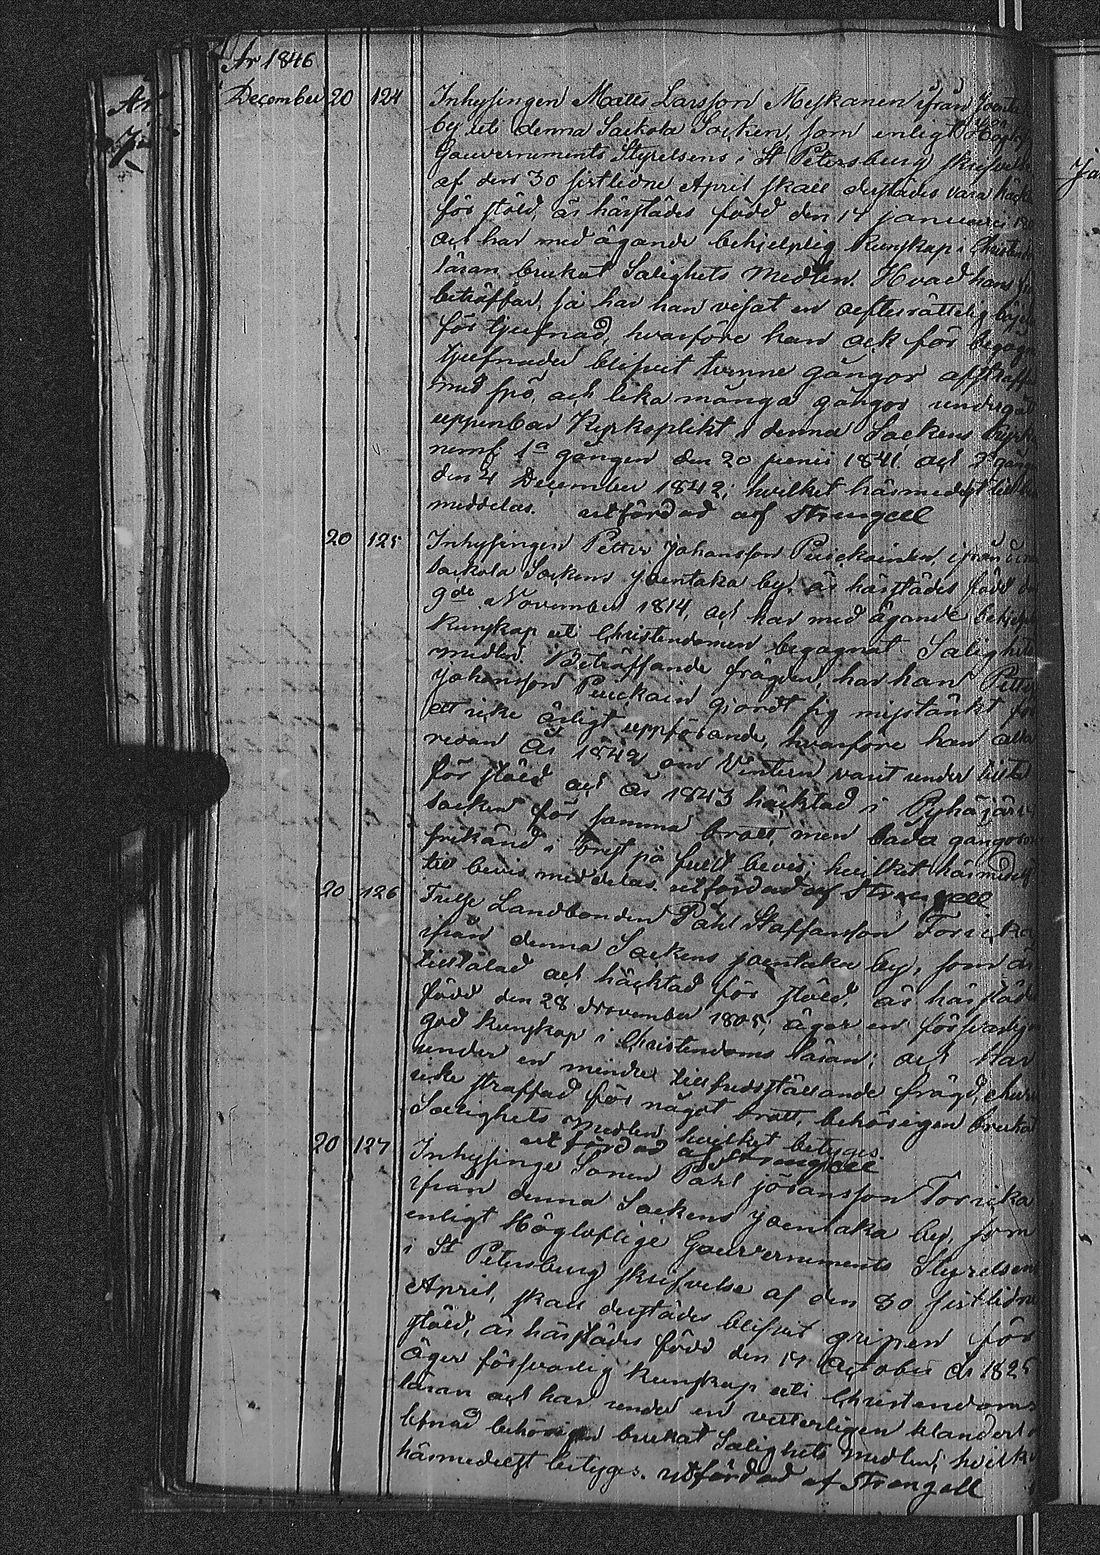 År 1846
December 20 124 Inhysingen Matts Larsson Meskanen ifrån
by uti denna Sackola Socken, som enligt
Gouvernements Styrelsens i St Petersburg skrifvelse
af den 30 sistlidne April skall derstädes vara
för stöld, är härstädes född den 14 Januarii
och har med ägande behjelplig kunskap i
läran brukat Salighets Medlen. Hvad hans
beträffar, så har han visat en oefterrättelig
för tjufnad, hvarföre han ock för
tjufnader blifvit tvenne gångor
med spö och lika många gångor
uppenbar Kyrkoplikt i denna Sockens
nemf. 1a gången den 20 Junii 1841 och 2a
den 4 December 1842; hvilket härmedelst
meddelas. utfärdad af Strengell
20 125 Inhysingen Petter Johansson ifrån
Sackola Sockens Joentaka by, är härstädes född
9de November 1814, och har med ägande
kunskap uti Christendomen begagnat Salighets
medlen. Beträffande frägden, har han Petter
Johansson gjordt sig misstänkt för
ett icke ärligt uppförande, hvarföre han
redan År 1842 om Vintern varit under
för stöld och År 1843 häcktad i Pyhäjärvi
Socken för samma brott, men båda gångor
frikänd i brist på fullt bevis; hvilket härmedelst
till bevis meddelas. utfärdad af Strengell
20 126 Landbonden Påhl Staffansson Torikka
ifrån denna Sockens Joentaka by, som är
tilltalad och häcktad för stöld, är härstädes
född den 28 November 1805, äger en försvarlig
god kunskap i Christendoms läran; och har
under en mindre tillfredsställande frägd,
icke straffad för något brott, behörigen brukat
Salighets Medlen, hvilket betyges.
utfärdad af Strengell
20 127 Inhysinge Sonen Påhl Jöransson Torikka
ifrån denna Sockens Joentaka by, som
enligt Högloflige Gouvernements Styrelsens
i St Petersburg skrifvelse af den 30 sistlidne
April, skall derstädes blifvit gripen för
stöld, är härstädes född den 14 October år 1825
äger försvarlig kunskap uti Christendoms
läran och har under en vitterligen
lefnad behörigen brukat Salighets Medlen, hvilket
härmedelst betyges. utfärdad af Strengell